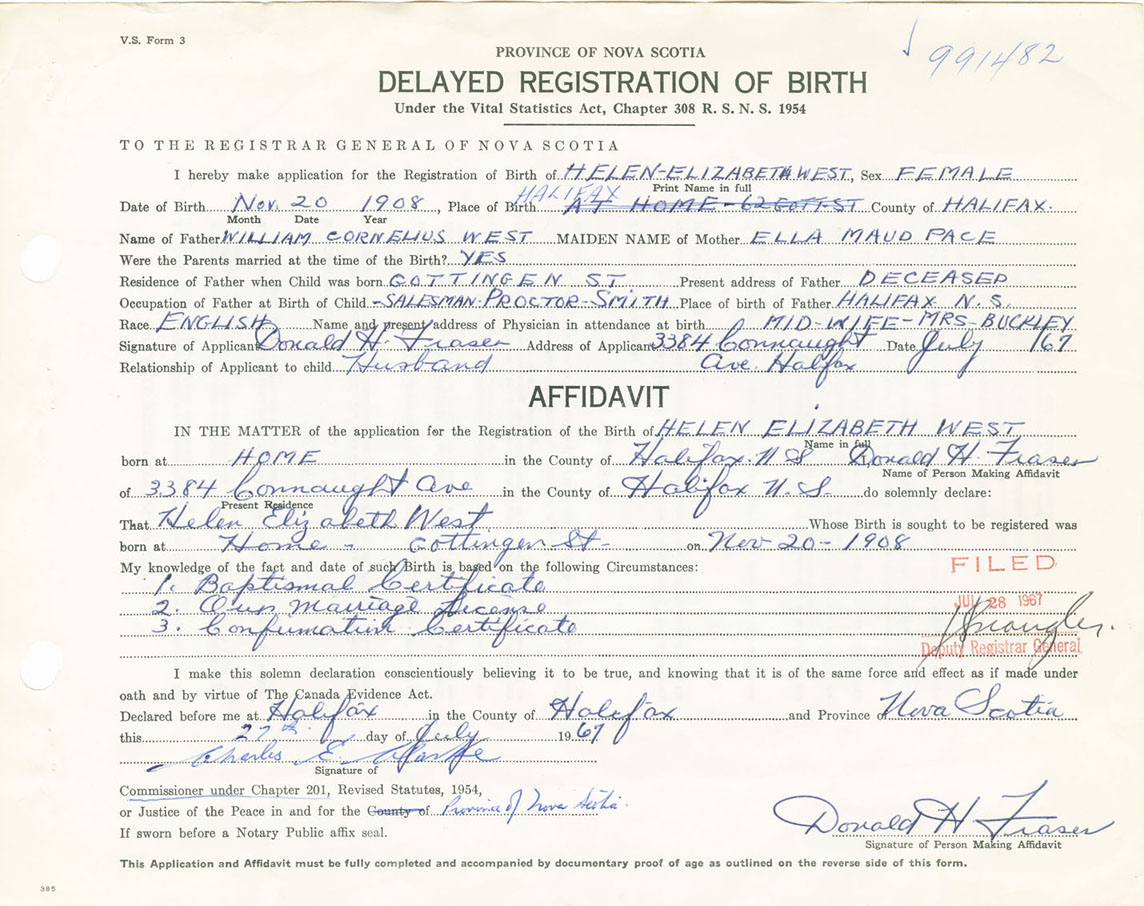 V.S. Form 3
991482
PROVINCE OF NOVA SCOTIA
DELAYED REGISTRATION OF BIRTH
Under the Vital Statistics Act, Chapter 308 R. S. N. S. 1954
TO THE REGISTRAR GENERAL OF NOVA SCOTIA
I hereby make application for the Registration of Birth of HELEN-ELIZABETH WEST, Sex FEMALE
Print Name in full
HALIFAX
Date of Birth Nov. 20 1908, Place of Birth AT HOME - 62 GOTT ST County of HALIFAX.
Month Date Year
Name of Father WILLIAM CORNELIUS WEST MAIDEN NAME of Mother ELLA MAUD PACE
Were the Parents married at the time of the Birth? YES
Residence of Father when Child was born GOTTINGEN ST Present address of Father DECEASED
Occupation of Father at Birth of Child -SALESMAN-PROCTOR-SMITH Place of birth of Father HALIFAX N.S.
Race ENGLISH Name and present address of Physician in attendance at birth MID-WIFE-MRS-BUCKLEY
Signature of Applicant Donald H. Fraser Address of Applicant 3384 Connaught Date July /67
Relationship of Applicant to child Husband Ave. Halifax
AFFIDAVIT
IN THE MATTER of the application for the Registration of the Birth of HELEN ELIZABETH WEST
Name in full
born at HOME in the County of Halifax. N S Donald H. Fraser
Name of Person Making Affidavit
of 3384 Connaught Ave in the County of Halifax N.S. do solemnly declare:
Present Residence
That Helen Elizabeth West Whose Birth is sought to be registered was
born at Home - Gottingen St- on Nov-20-1908
My knowledge of the fact and date of such Birth is based on the following Circumstances:
1. Baptismal Certificate
2. Our Marriage License
3. Confirmation Certificate
FILED
JUL 28 1967
Deputy Registrar General
I make this solemn declaration conscientiously believing it to be true, and knowing that it is of the same force and effect as if made under
oath and by virtue of The Canada Evidence Act.
Declared before me at Halifax in the County of Halifax and Province of Nova Scotia
this 27th day of July 1967
Charles E. Clarke
Signature of
Commissioner under Chapter 201, Revised Statutes, 1954,
or Justice of the Peace in and for the County of Province of Nova Scotia.
If sworn before a Notary Public affix seal.
Donald H Fraser
Signature of Person Making Affidavit
This Application and Affidavit must be fully completed and accompanied by documentary proof of age as outlined on the reverse side of this form.
385